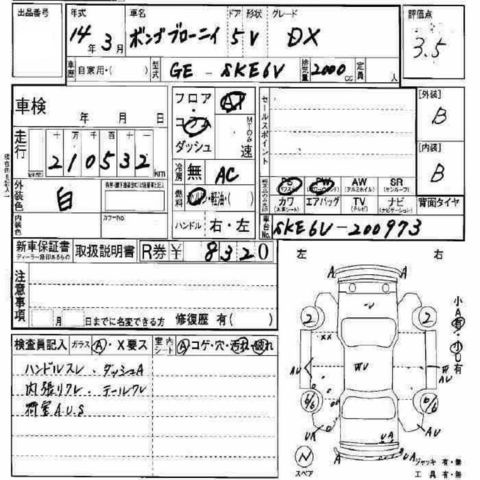 出品番号 年式 車名 ドア 形状 グレード 評価点
14年3月 ボンゴブローニイ 5 V DX 3.5
車歴 自家用・( ) 型式 GE - SKE6V 排気量 2000cc 定員 人
車検 年 月 日
フロア・コラム・ダッシュ AT MTのみ 速
セールスポイント
[外装] B
[内装] B
走行 十万千百十一
210532 km
冷房 無 AC
燃料 ガソリン・軽油・( )
ハンドル 右・左
外装色 白
カラーNo.
内装色
PS PW AW SR
(パワステ) (アルミホイル) (サンルーフ)
カワ エアバッグ TV ナビ 背面タイヤ
(本革シート) (テレビ) (ナビゲーション)
車台No. SKE6V-200973
新車保証書 取扱説明書 R券 ¥ 8320
ディーラー捺印あるもの
注意事項
月 日までに名変できる方 修復歴 有( )
左 右
小A有・小U有
検査員記入 ガラス A・X要ス 室内シート A コゲ・穴・汚れ・破れ
ハンドルスレ・ダッシュA
内張りワレ・テールワレ
荷室A.U.S
2 2
xx x
A AU U AU
6/6 6/6
UA A UA A AU
スペア ジャッキ 有・無
工具 有・無